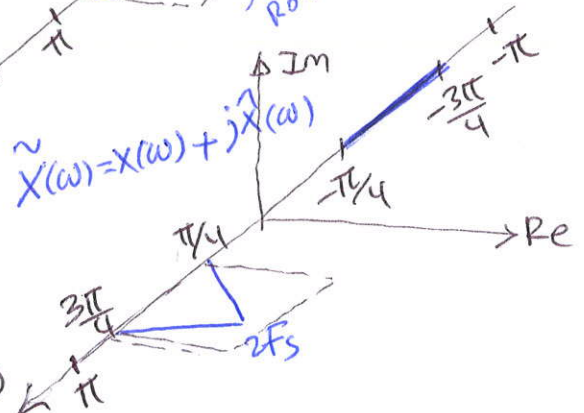 π
Im
-π
-3π/4
X̃(ω)=X(ω)+jX̂(ω)
-π/4
π/4
Re
3π/4
2Fs
π